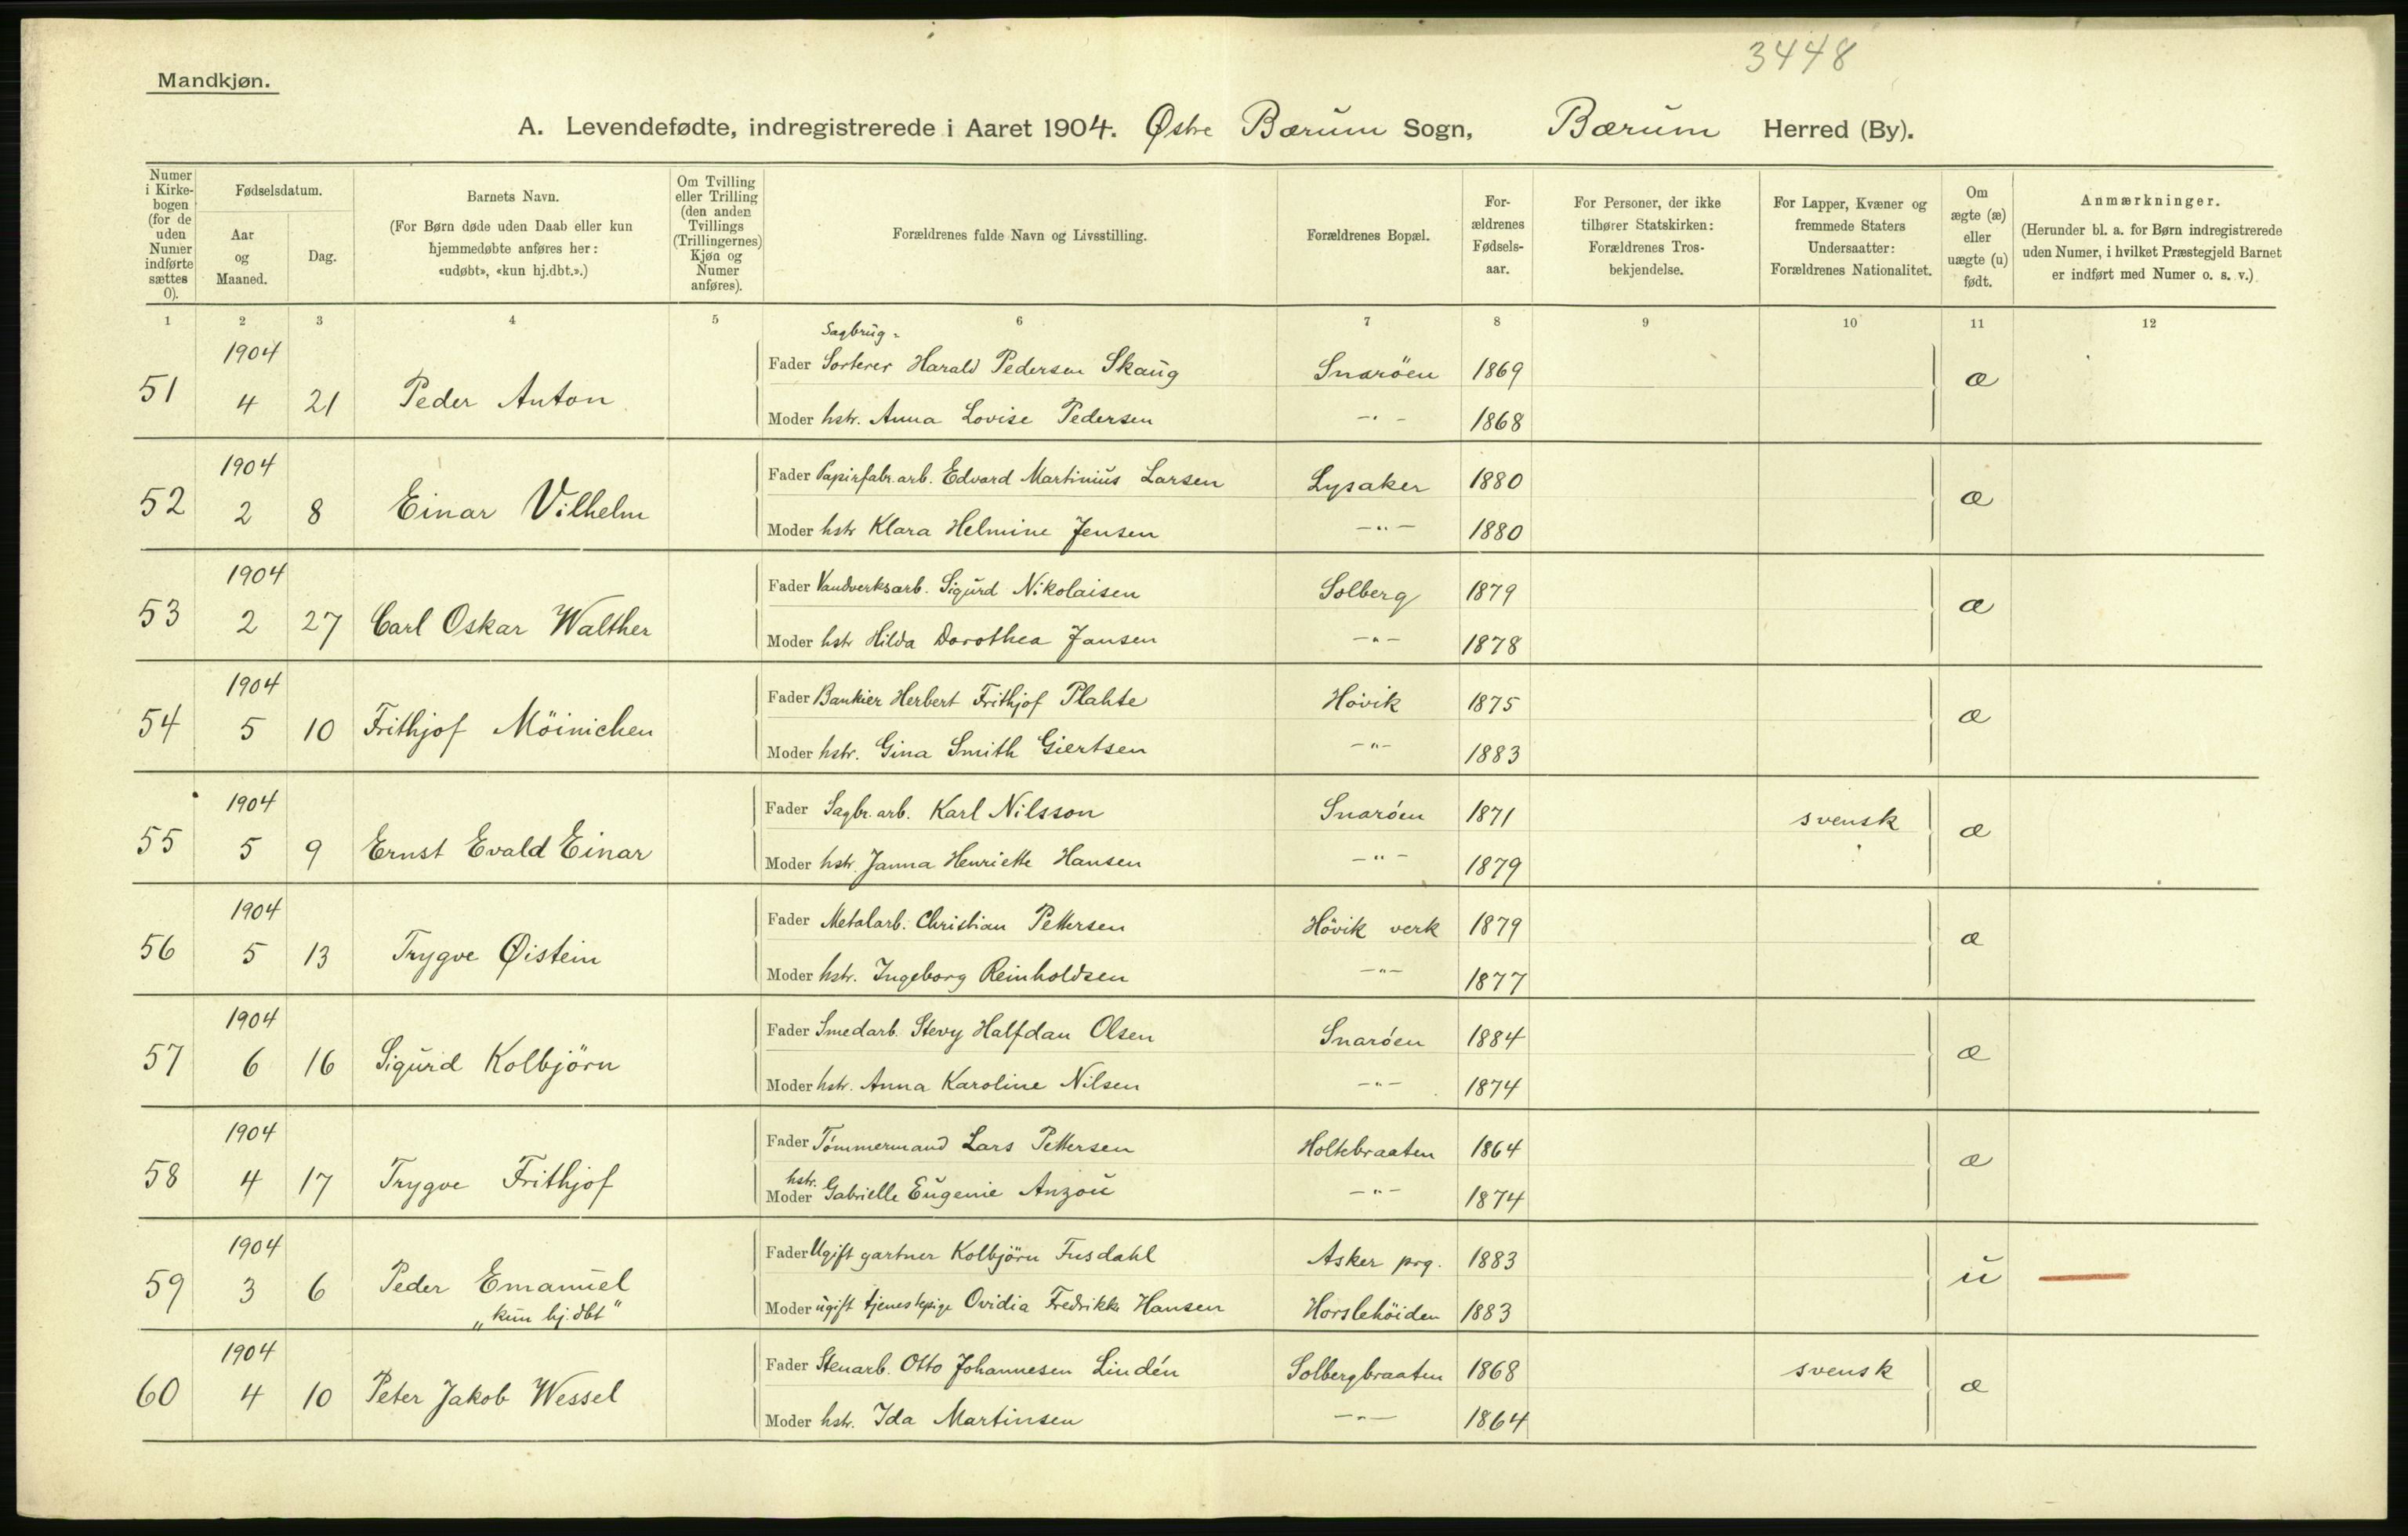 3448
Mandkjøn.
A. Levendefødte, indregistrerede i Aaret 1904. Østre Bærum Sogn, Bærum Herred (By).
Numer i Kirkebogen (for de uden Numer indførte sættes 0).
Fødselsdatum.
Aar og Maaned.
Dag.
Barnets Navn.
(For Børn døde uden Daab eller kun hjemmedøbte anføres her: «udøbt», «kun hj.dbt.».)
Om Tvilling eller Trilling (den anden Tvillings (Trillingernes) Kjøn og Numer anføres).
Forældrenes fulde Navn og Livsstilling.
Forældrenes Bopæl.
Forældrenes Fødselsaar.
For Personer, der ikke tilhører Statskirken: Forældrenes Trosbekjendelse.
For Lapper, Kvæner og fremmede Staters Undersaatter: Forældrenes Nationalitet.
Om ægte (æ) eller uægte (u) født.
Anmærkninger.
(Herunder bl. a. for Børn indregistrerede uden Numer, i hvilket Præstegjeld Barnet er indført med Numer o. s. v.)
1 2 3 4 5 6 7 8 9 10 11 12
51 1904 4 21 Peder Anton
Sagbrug-
Fader Sorterer Harald Pedersen Skaug Snaröen 1869 æ
Moder hstr. Anna Lovise Pedersen -"- 1868
52 1904 2 8 Einar Vilhelm
Fader Papirfabr.arb. Edvard Martinius Larsen Lysaker 1880 æ
Moder hstr Klara Helmine Jensen -"- 1880
53 1904 2 27 Carl Oskar Walther
Fader Vandverksarb. Sigurd Nikolaisen Solberg 1879 æ
Moder hstr Hilda Dorothea Jansen -"- 1878
54 1904 5 10 Frithjof Möinichen
Fader Bankier Herbert Frithjof Plahte Hövik 1875 æ
Moder hstr. Gina Smith Giertsen -"- 1883
55 1904 5 9 Ernst Evald Einar
Fader Sagbr. arb. Karl Nilsson Snaröen 1871 svensk æ
Moder hstr. Janna Henriette Hansen -"- 1879
56 1904 5 13 Trygve Øistein
Fader Metalarb. Christian Pettersen Hövik verk 1879 æ
Moder hstr. Ingeborg Reinholdsen -"- 1877
57 1904 6 16 Sigurd Kolbjörn
Fader Smedarb. Stevy Halfdan Olsen Snaröen 1884 æ
Moder hstr. Anna Karoline Nilsen -"- 1874
58 1904 4 17 Trygve Frithjof
Fader Tömmermand Lars Pettersen Holtebraaten 1864 æ
Moder hstr. Gabrielle Eugenie Anzou -"- 1874
59 1904 3 6 Peder Emanuel
„kun hj.dbt"
Fader Ugift gartner Kolbjörn Fusdahl Asker prg. 1883 u
Moder ugift tjenestepige Ovidia Fredrikke Hansen Horslehöiden 1883
60 1904 4 10 Peter Jakob Wessel
Fader Stenarb. Otto Johannesen Lindén Solbergbraaten 1868 svensk æ
Moder hstr. Ida Martinsen -"- 1864